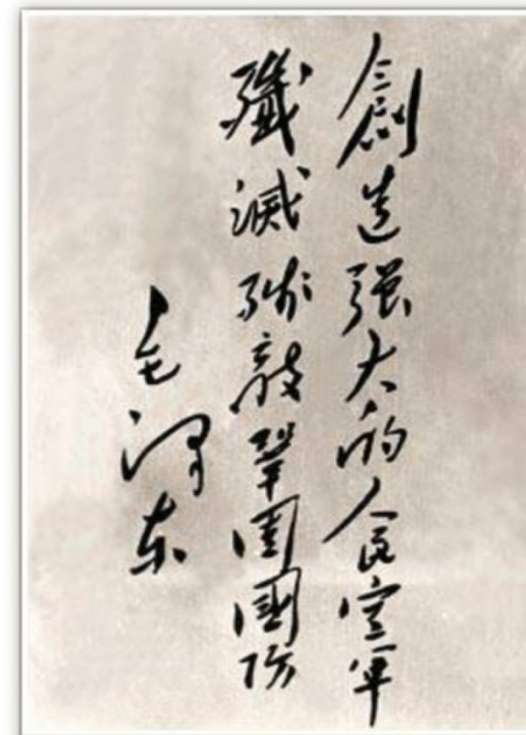 創造强大的人民空軍
殲滅殘敵鞏固國防
毛澤东